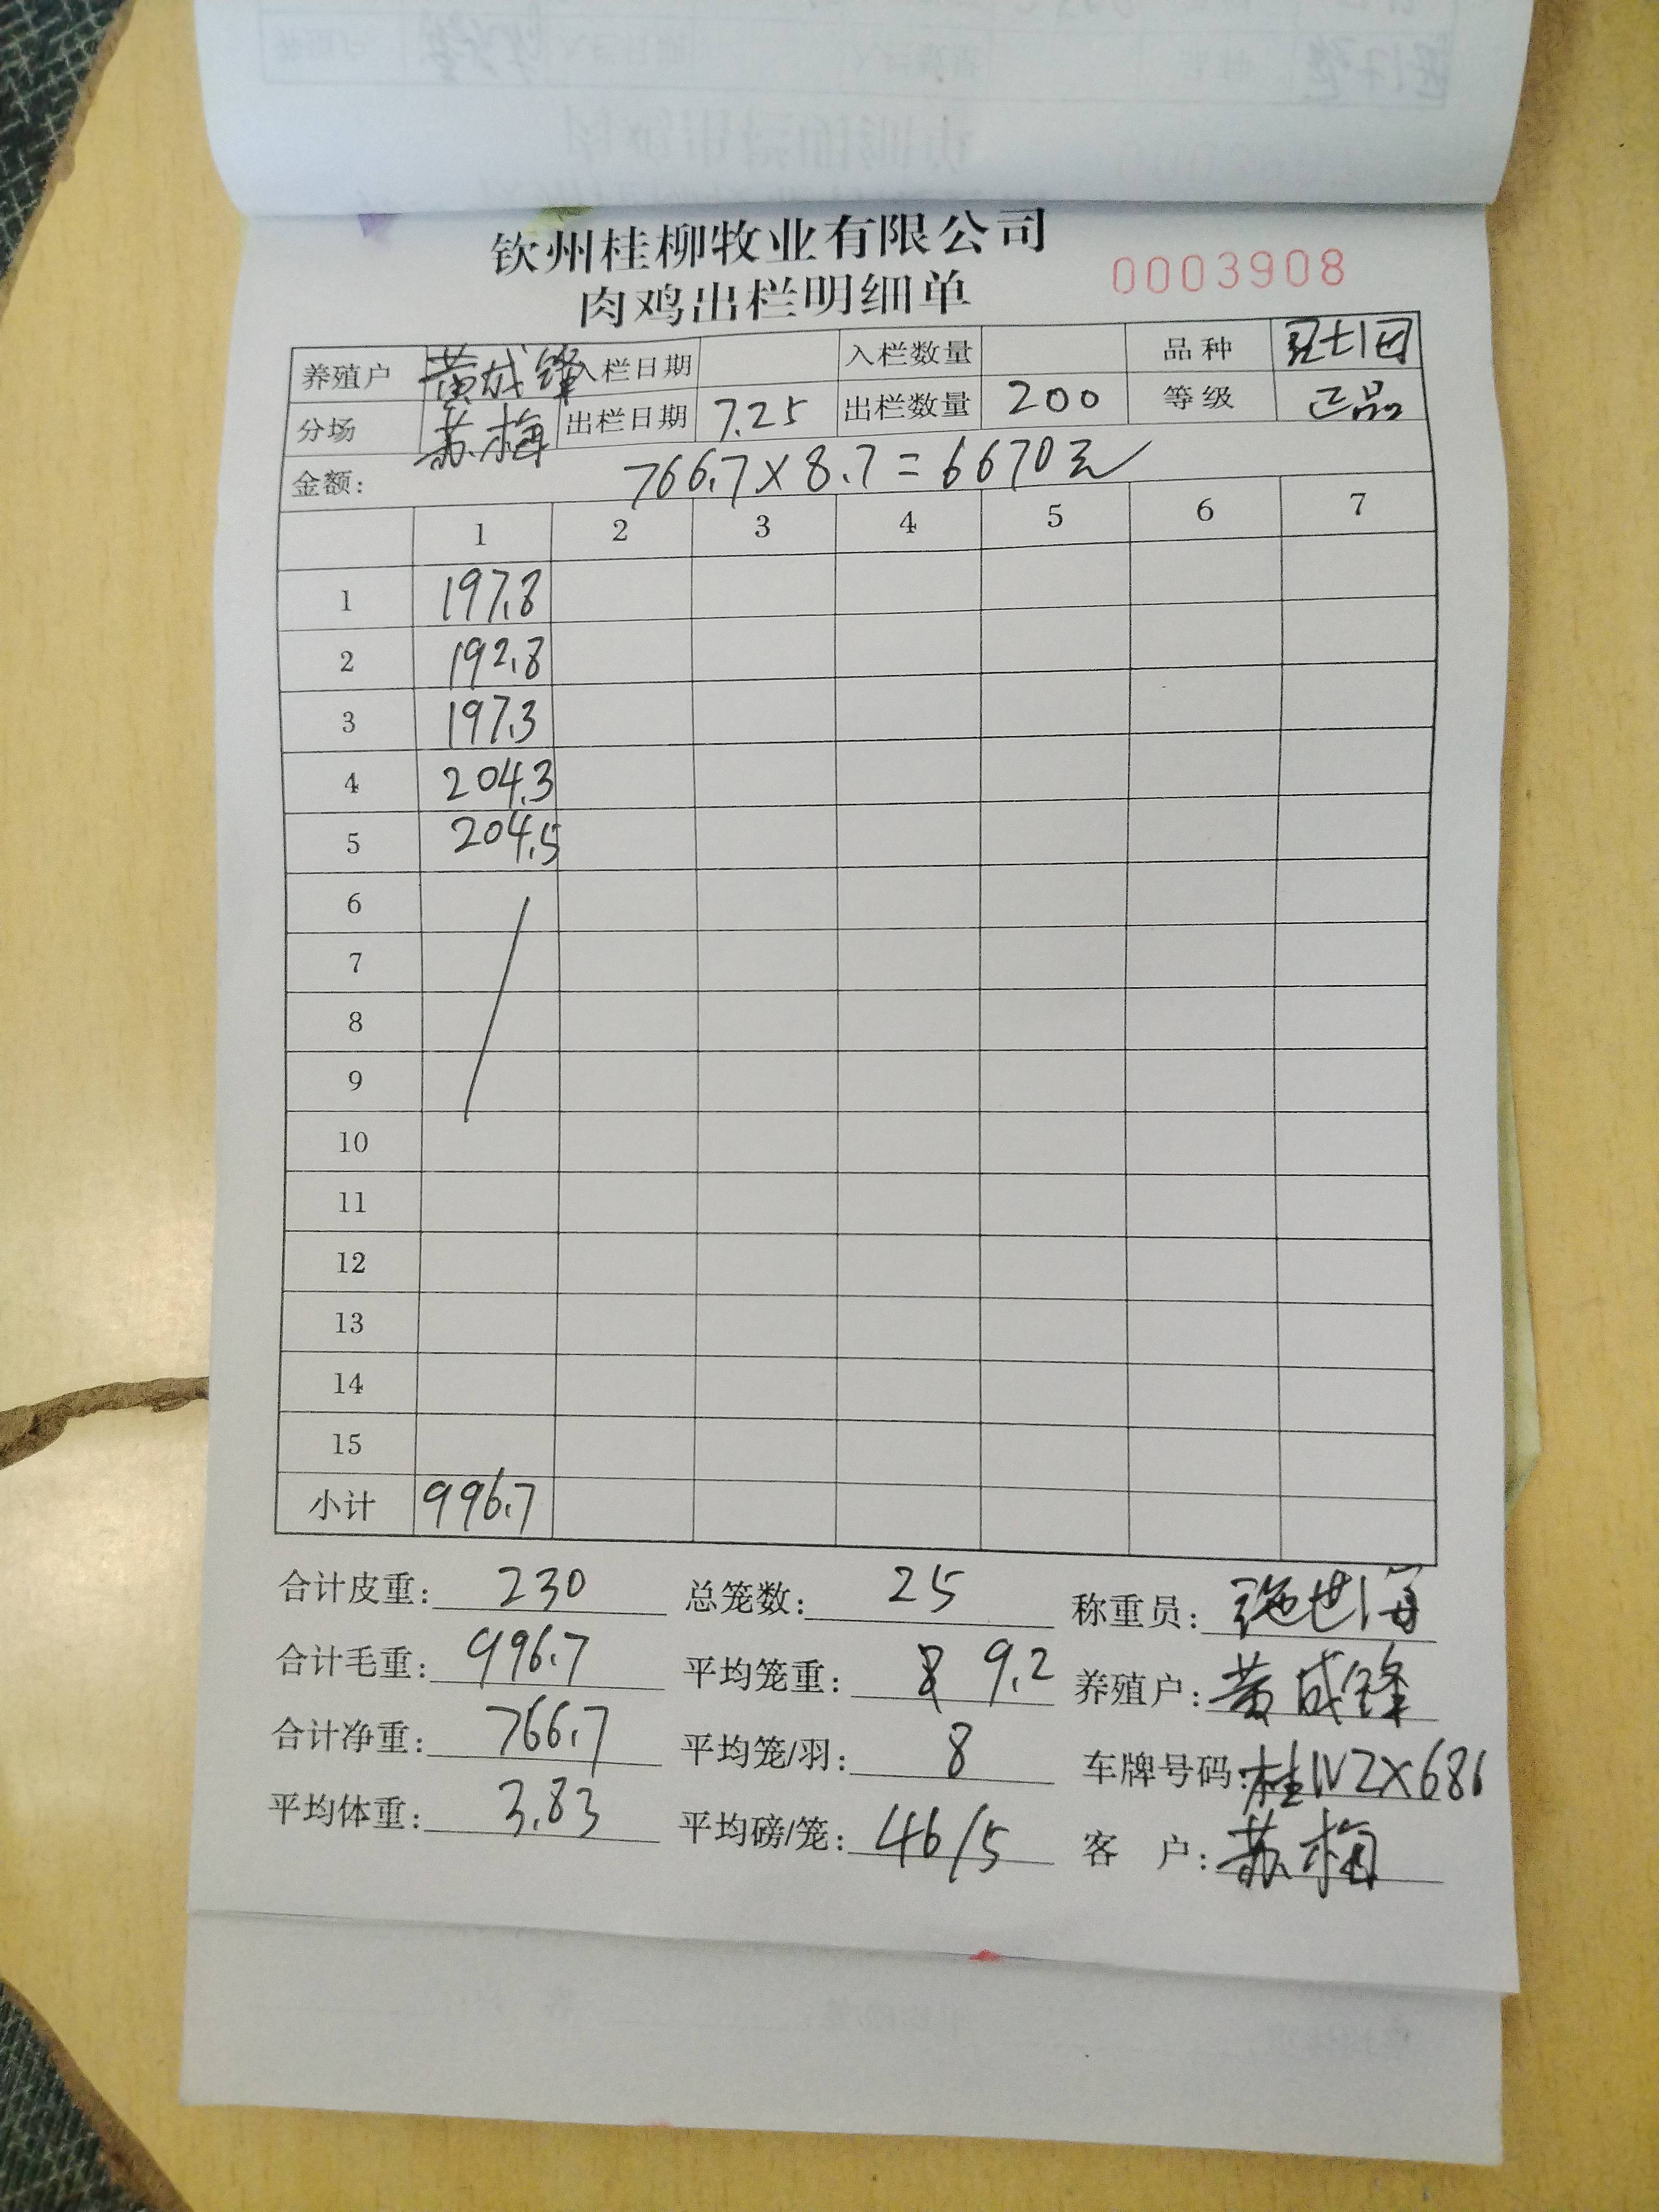 钦州桂柳牧业有限公司
肉鸡出栏明细单 0003908
养殖户 黄成锋 入栏日期 入栏数量 品种
分场 苏梅 出栏日期 7.25 出栏数量 200 等级 正品
金额: 766.7×8.7=6670元
1 2 3 4 5 6 7
1 197.8
2 192.8
3 197.3
4 204.3
5 204.5
6
7
8
9
10
11
12
13
14
15
小计 996.7
合计皮重: 230 总笼数: 25 称重员:
合计毛重: 996.7 平均笼重: 9.2 养殖户: 黄成锋
合计净重: 766.7 平均笼/羽: 8 车牌号码:
平均体重: 3.83 平均磅/笼: 46/5 客 户: 苏梅